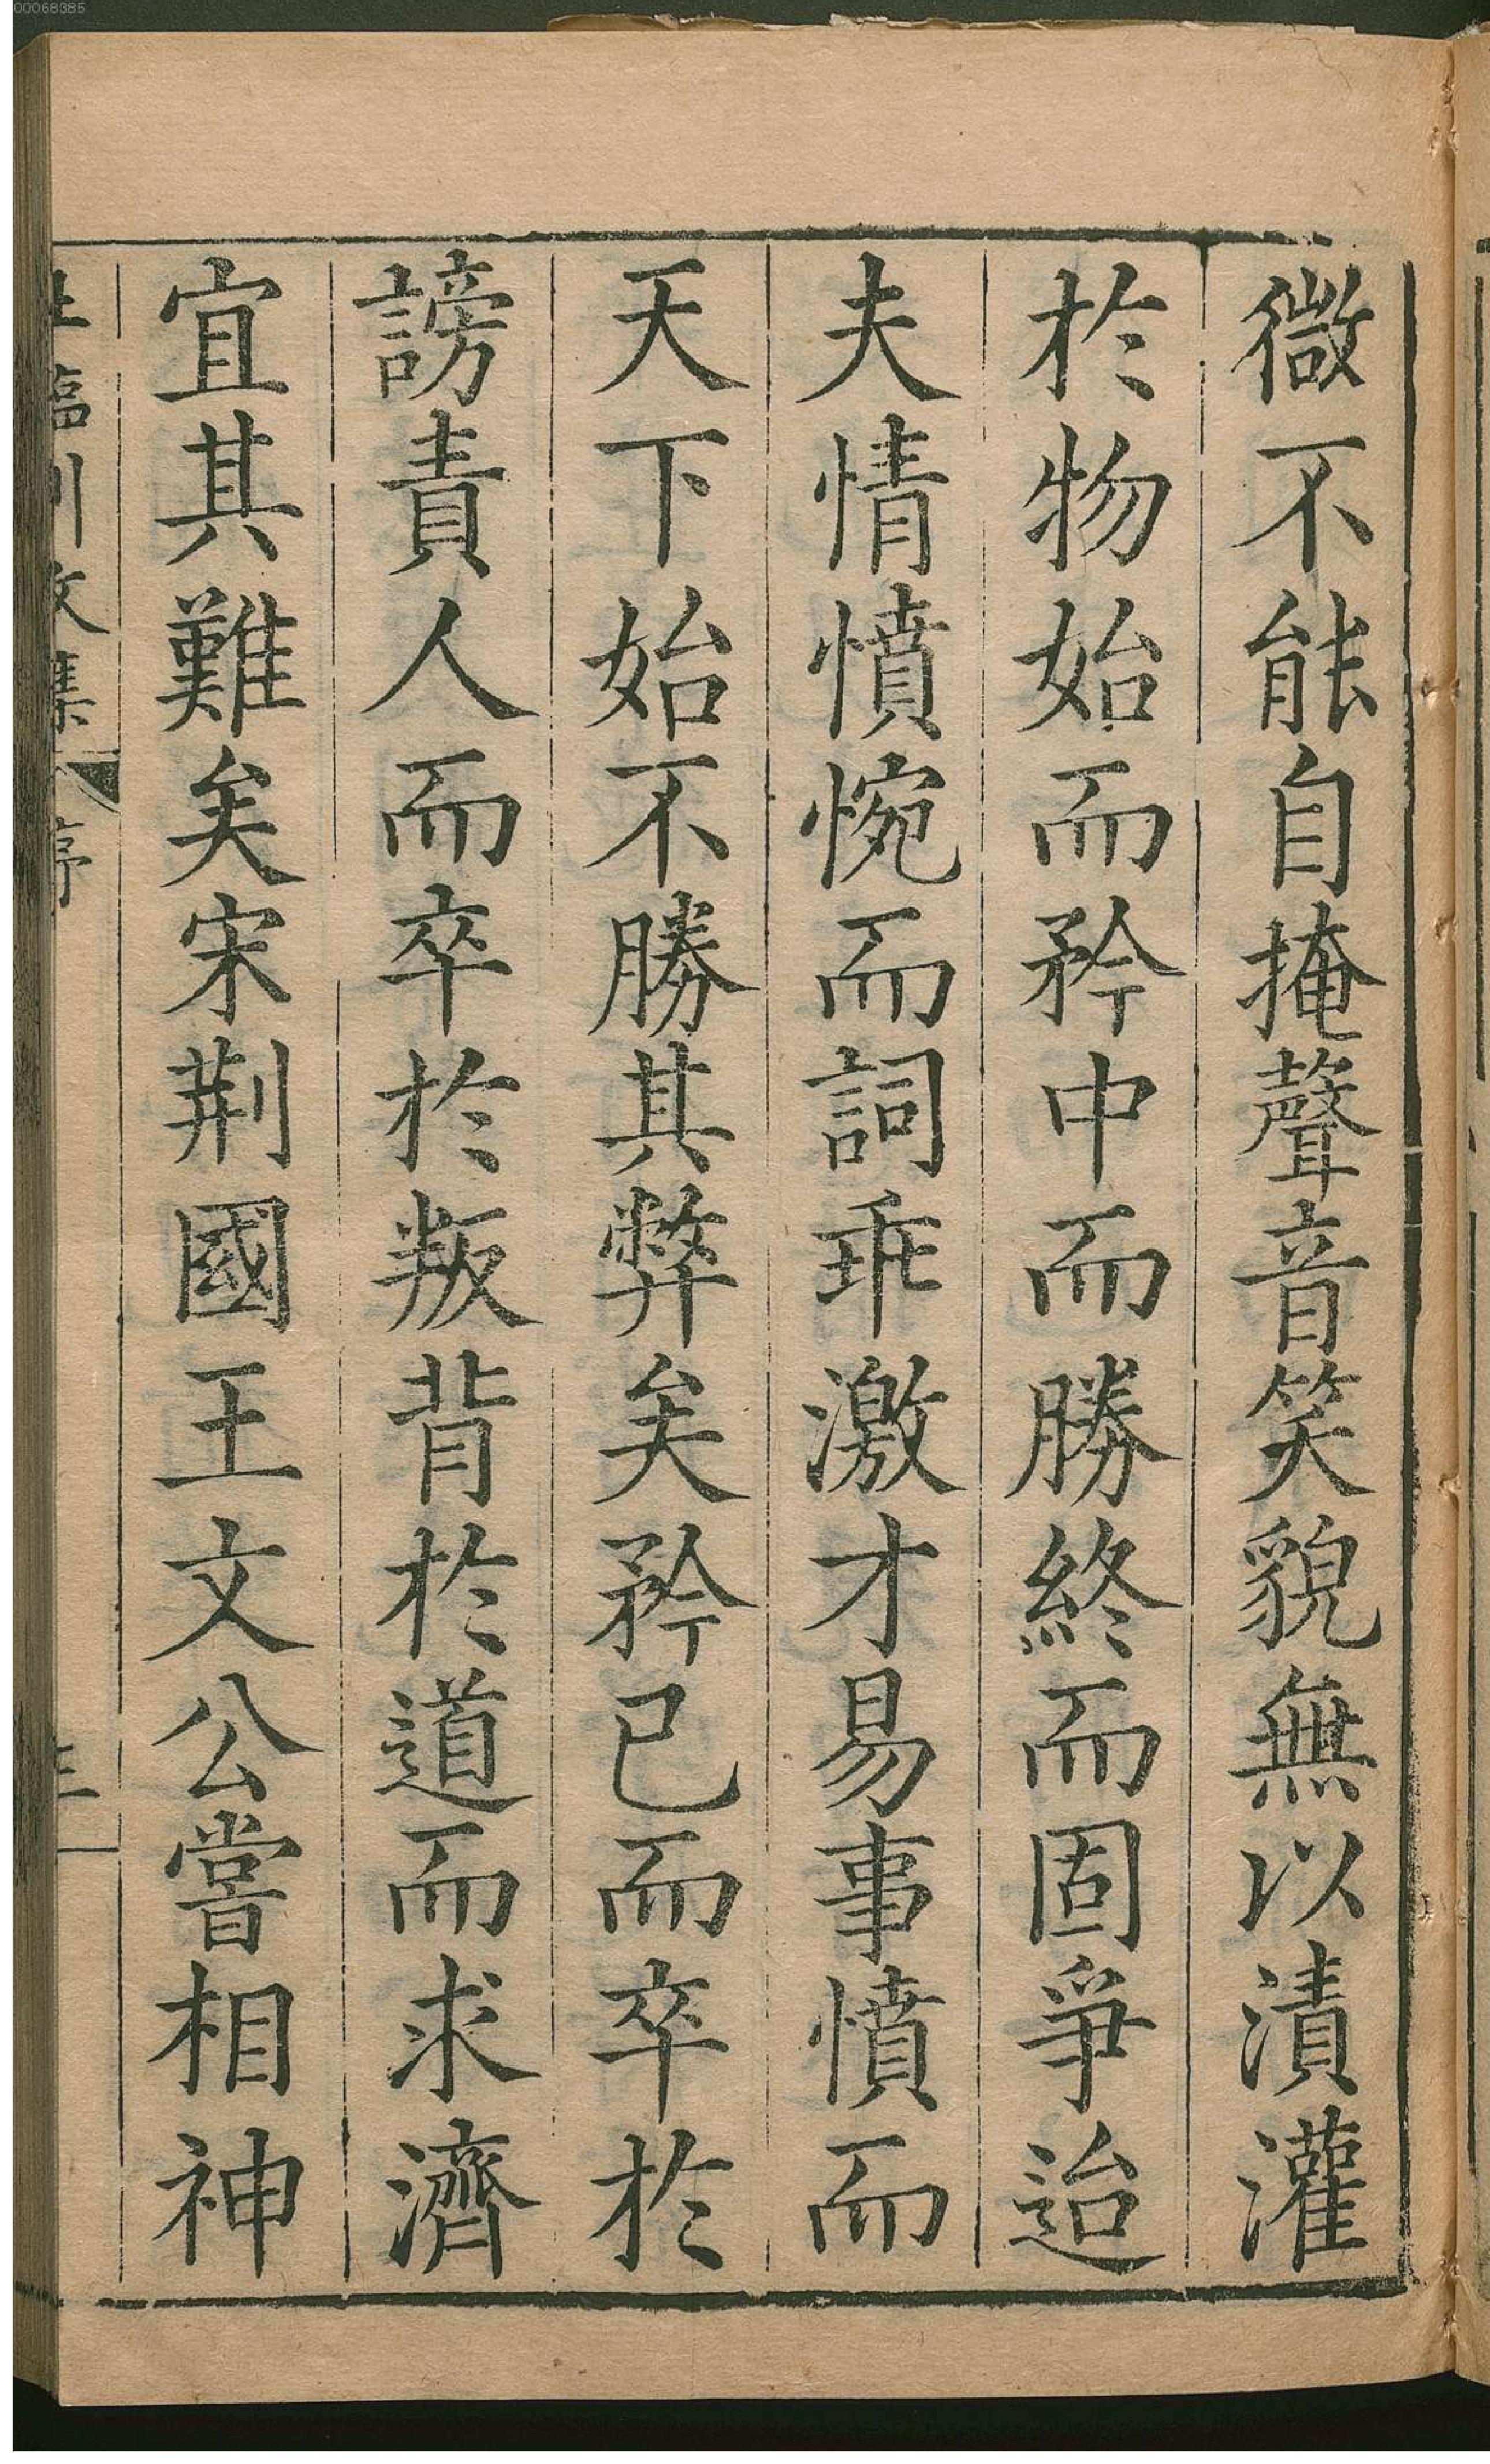 00068385
微不能自掩聲音笑貌無以漬灌
於物始而矜中而勝終而固爭迨
夫情憤惋而詞乖激才易事憤而
天下始不勝其弊矣矜已而卒於
謗責人而卒於叛背於道而求濟
宜其難矣宋荆國王文公嘗相神
臨川文集 序